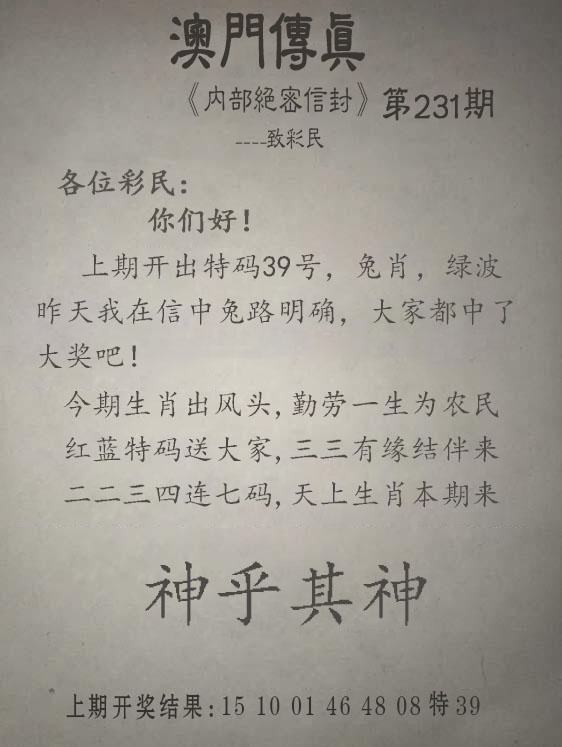 澳門傳真
《内部絕密信封》第231期
----致彩民
各位彩民：
你们好！
上期开出特码39号，兔肖，绿波
昨天我在信中兔路明确，大家都中了
大奖吧！
今期生肖出风头,勤劳一生为农民
红蓝特码送大家,三三有缘结伴来
二二三四连七码,天上生肖本期来
神乎其神
上期开奖结果:15 10 01 46 48 08特39